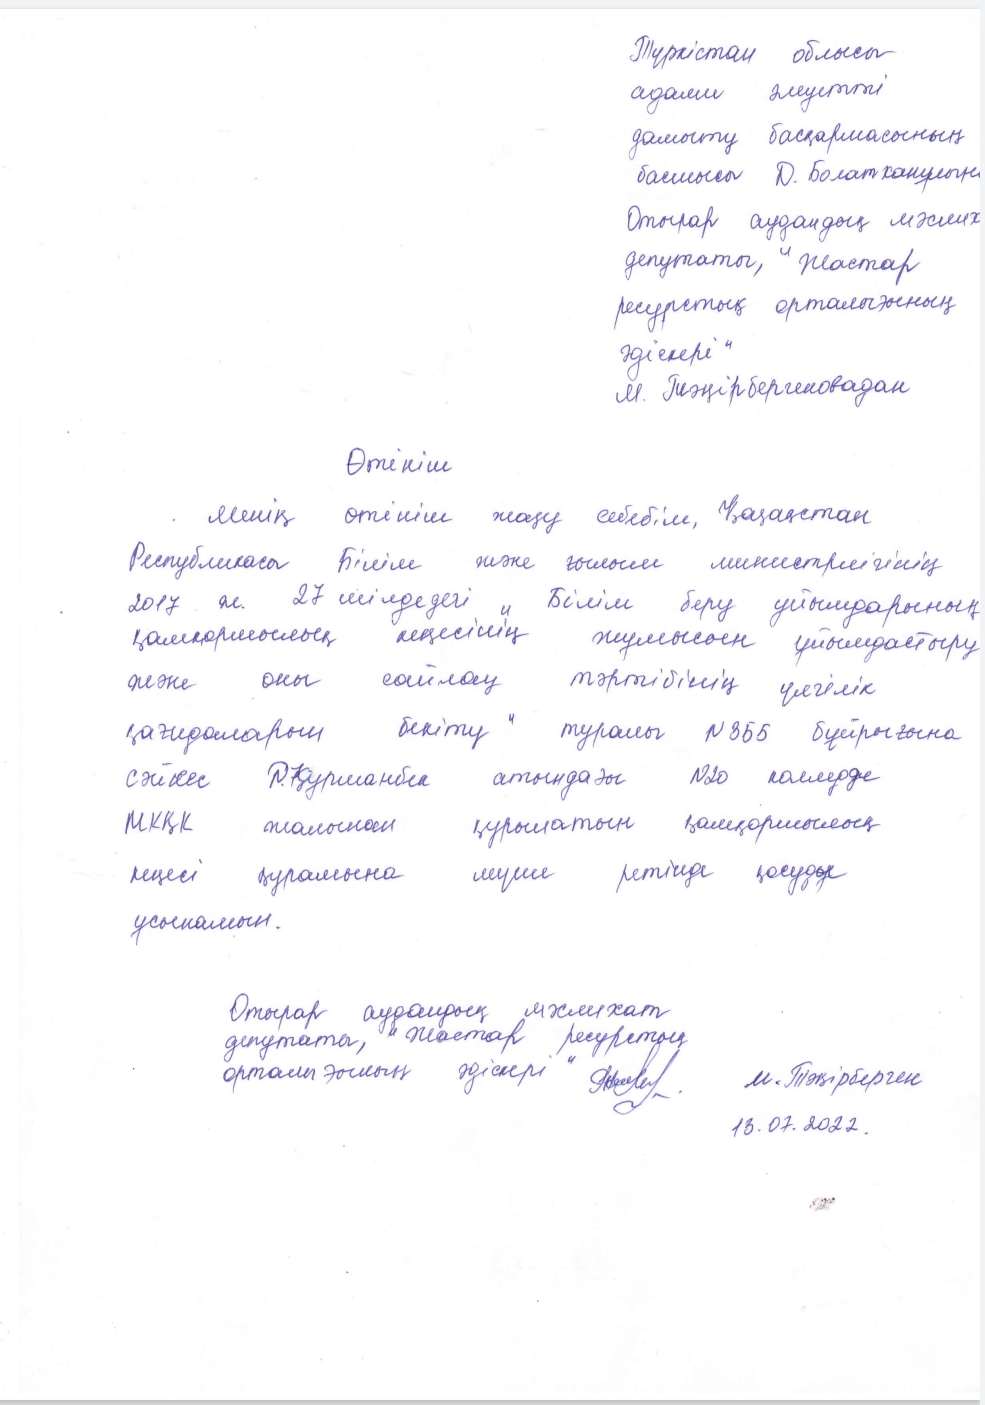 Түркістан облысы
адами әлеуетті
дамыту басқармасының
басшысы Д. Болатханұлын
Отырар аудандық мәслих
депутаты, "Жастар
ресурстық орталығының
әдіскері"
М. Тәңірбергеновадан
Өтініш
Менің өтініш жазу себебім, Қазақстан
Республикасы Білім және ғылым министрлігінің
2017 ж. 27 шілдедегі "Білім беру ұйымдарының
қамқоршылық кеңесінің жұмысын ұйымдастыру
және оны сайлау тәртібінің үлгілік
қағидаларын бекіту" туралы №355 бұйрығына
сәйкес Д.Құрманбек атындағы №20 колледж
МКҚК жанынан құрылатын қамқоршылық
кеңесі құрамына мүше ретінде қосуды
ұсынамын.
Отырар аудандық мәслихат
депутаты, "Жастар ресурстық
орталығының әдіскері" М. Тәңірберген
13.07.2022.